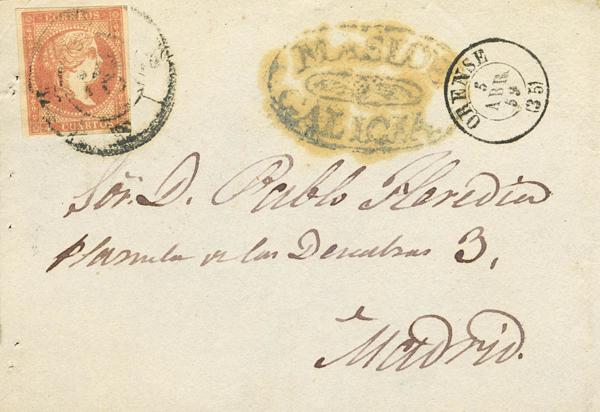 CORREOS
CUARTOS
MASIDE
GALICIA
ORENSE
5
ABR
59
(35)
Sór. D. Pablo Heredia
Plazuela de las Descalzas 3,
Madrid.